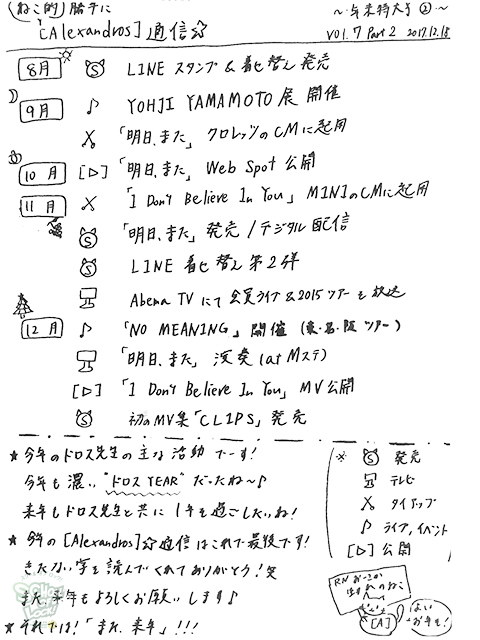 (ねこ的) 勝手に
[Alexandros]通信☆
〜年末特大号②〜
vol.7 Part2 2017.12.18
8月 LINE スタンプ & 着せ替え 発売
9月 ♪ YOHJI YAMAMOTO 展 開催
「明日、また」クロレッツのCMに起用
10月 [▷] 「明日、また」Web Spot 公開
11月 「I Don't Believe In You」MINIのCMに起用
「明日、また」発売 / デジタル配信
LINE 着せ替え 第2弾
Abema TV にて 全員ライブ & 2015ツアーを放送
12月 ♪ 「NO MEANING」開催 (東・名・阪 ツアー)
「明日、また」演奏 (at Mステ)
[▷] 「I Don't Believe In You」MV公開
初のMV集「CLIPS」発売
★ 今年のドロス先生の主な活動でーす!
今年も濃い"ドロスYEAR"だったね〜♪
来年もドロス先生と共に1年を過ごしたいね!
★ 今年の[Alexandros]☆通信はこれで最後です!
きたない字を読んでくれてありがとう!笑
また来年もよろしくお願いします♪
★ それでは!「また、来年」!!!
※ 発売
テレビ
タイアップ
♪ ライブ、イベント
[▷] 公開
RN
生まれのねこ
[A]
はい
お年を!